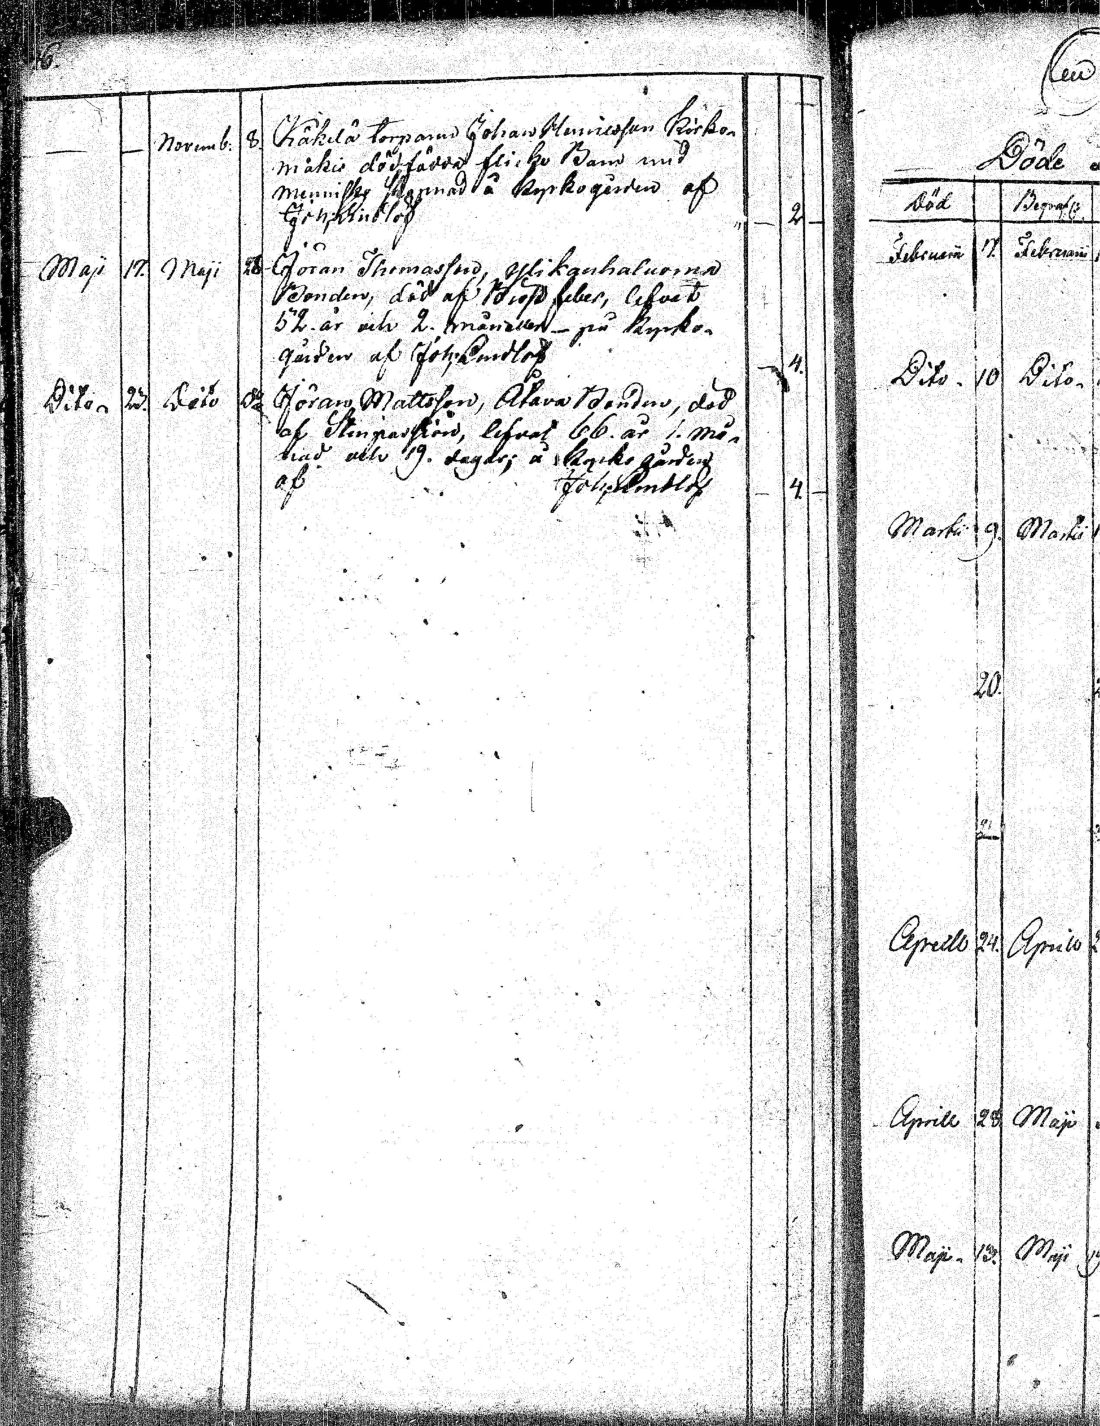 6.
Novemb. 8. Käkelä torparns Johan Henricsson Kirko-
mäkis dödfödda flicko Barn med
menniske skapnad å kyrkogården af
Joh. Lindlöf 2
Maji 17. Maji 28 Jöran Thomasson, Ylikauhaluoma
Bonden, död af Bröst feber, lefvat
52. år och 2. månader — på kyrko-
gården af Joh. Lindlöf 4.
Dito 23. Dito Jöran Mattsson, Åtava Bonden, död
af Stenpassion, lefvat 66. år 1. må-
nad och 19. dagar; å kyrko gården
af Joh. Lindlöf 4.
Döde
Död Begrafs.
Februarii 7. Februarii
Dito 10 Dito
Martii 9. Martii
20.
Aprill 24. Aprill
Aprill 28 Maji
Maji 13. Maji